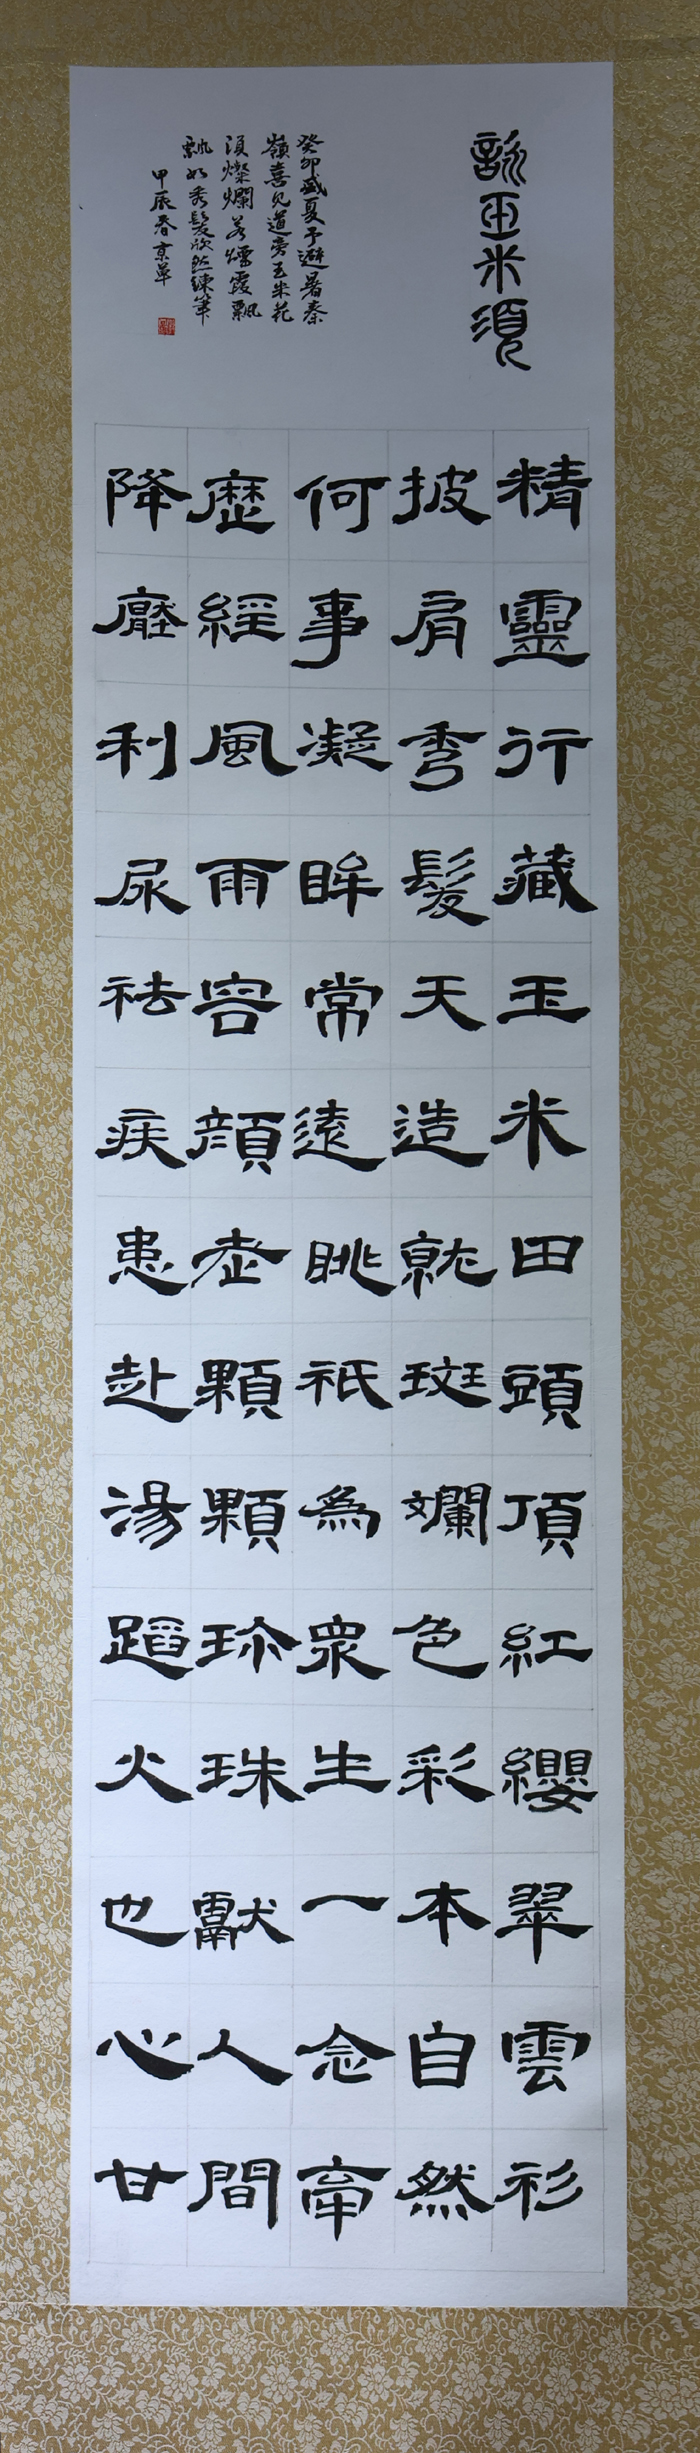 詠玉米須
癸卯盛夏予避暑秦
嶺喜見道旁玉米花
須燦爛若煙霞飄
飄如秀髮欣然練筆
甲辰春京華
精靈行藏玉米田頭頂紅纓翠雲衫
披肩秀髮天造就斑斕色彩本自然
何事凝眸常遠眺祇為眾生一念牽
歷經風雨容顏老顆顆珍珠獻人間
降壓利尿祛疾患赴湯蹈火也心甘